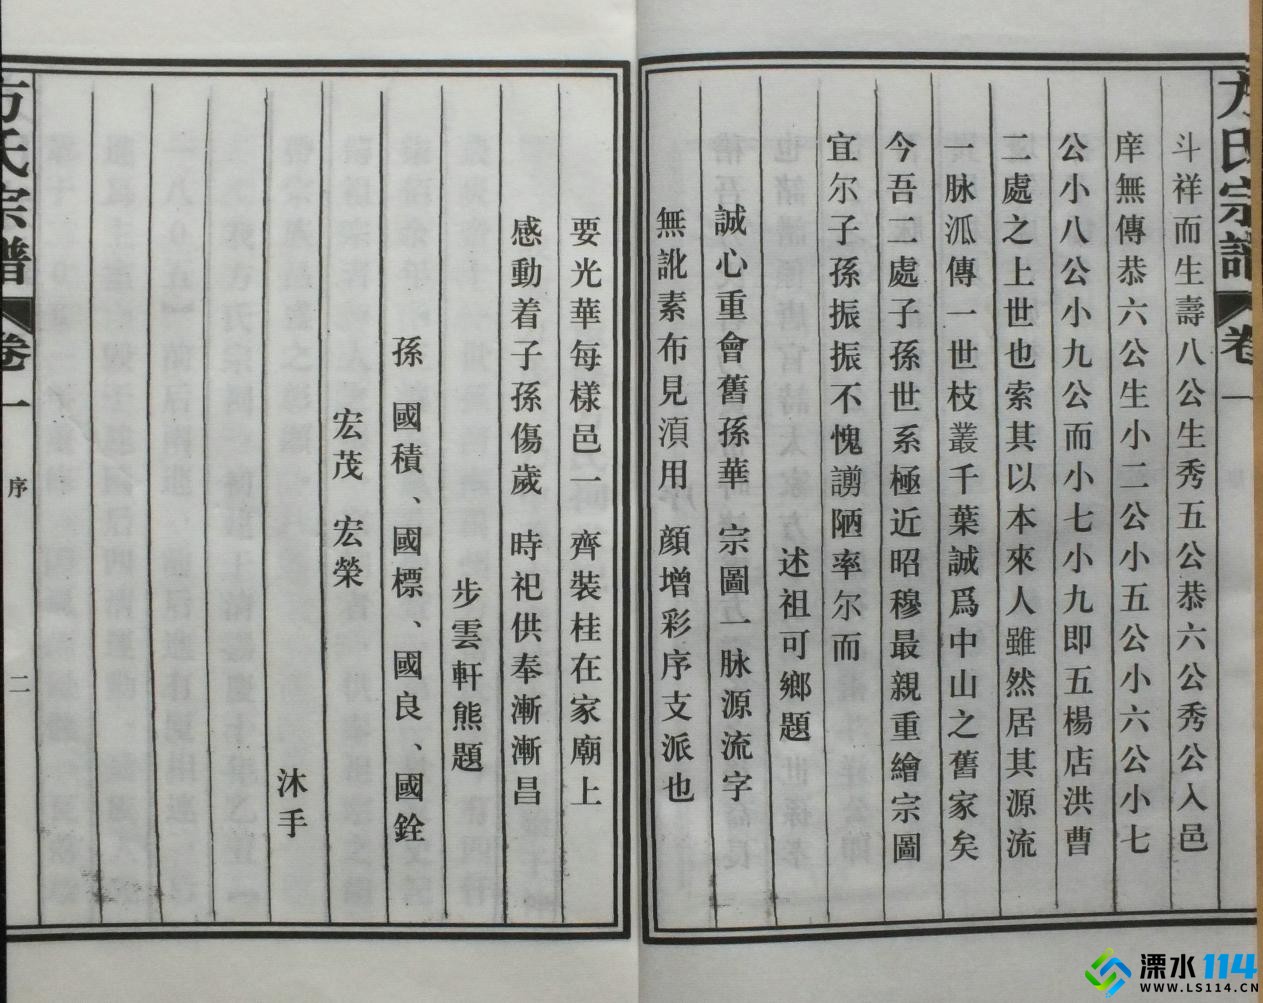 方氏宗譜 卷一
斗祥而生壽八公生秀五公恭六公秀公入邑
庠無傳恭六公生小二公小五公小六公小七
公小八公小九公而小七小九即五楊店洪曹
二處之上世也索其以本來人雖然居其源流
一脉泒傳一世枝叢千葉誠爲中山之舊家矣
今吾二處子孫世系極近昭穆最親重繪宗圖
宜尔子孫振振不愧謭陋率尔而
述祖可鄉題
誠心重會舊孫華 宗圖一脉源流字
無訛素布見湏用 顔增彩序支派也
要光華每樣邑一 齊裝桂在家廟上
感動着子孫傷歲 時祀供奉漸漸昌
步雲軒熊題
孫 國積、國標、國良、國銓
宏茂 宏榮
沐手
方氏宗譜 卷一 序 二
溧水114
WWW.LS114.CN